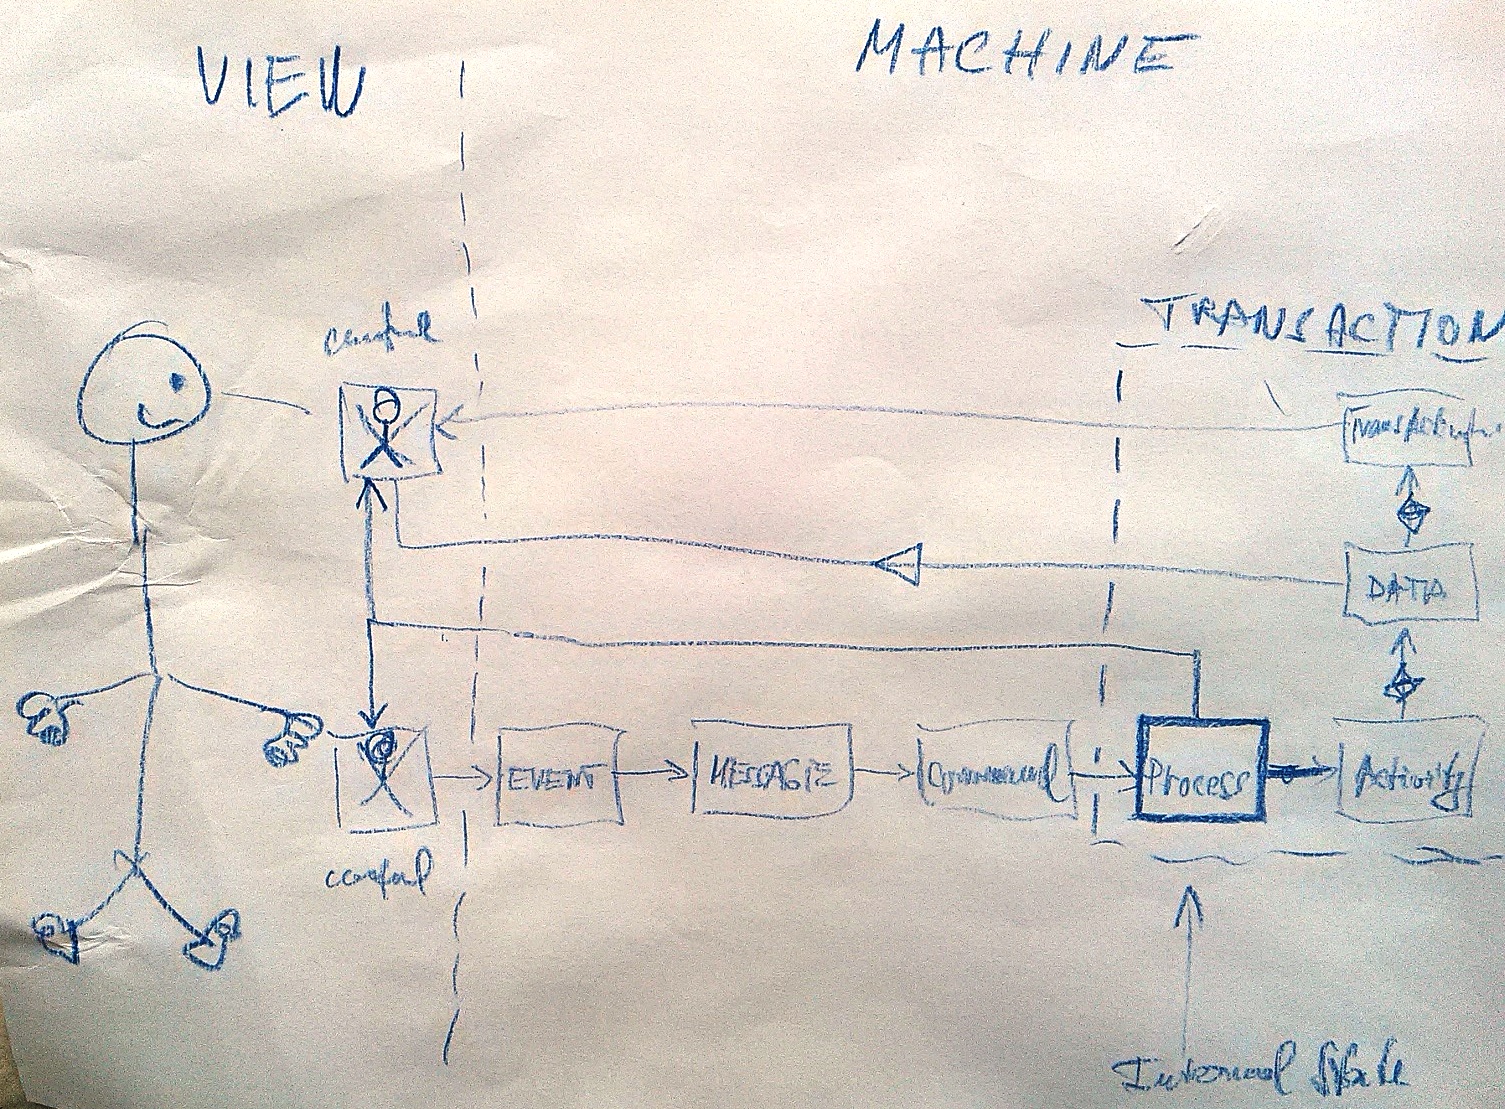 VIEW
MACHINE
TRANSACTION
control
Transaction
DATA
EVENT
MESSAGE
Command
Process
Activity
control
Internal State